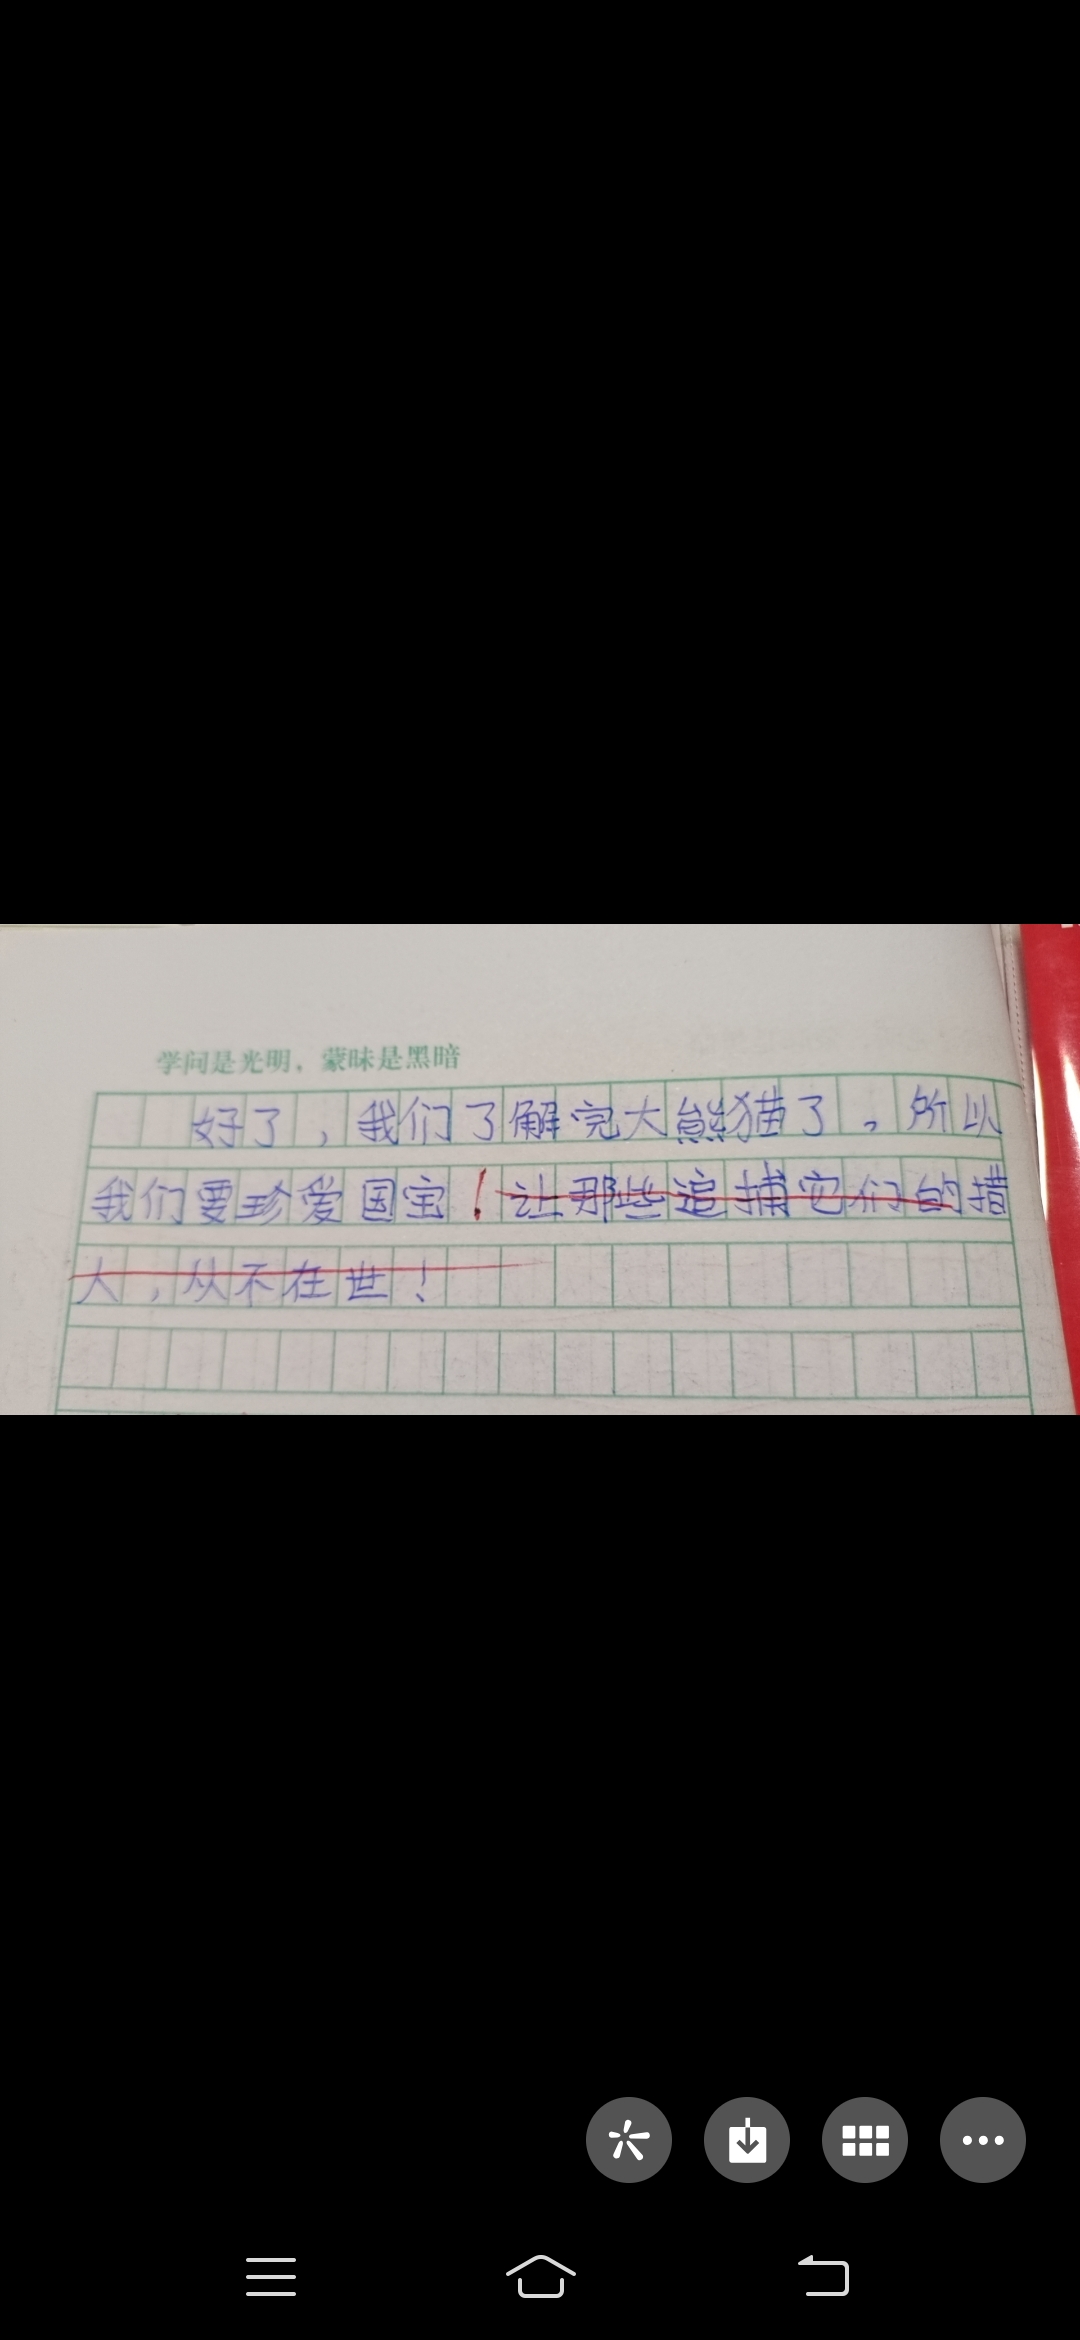 学问是光明，蒙昧是黑暗
好了，我们了解完大熊猫了。所以
我们要珍爱国宝！让那些追捕它们的措
大，从不在世！